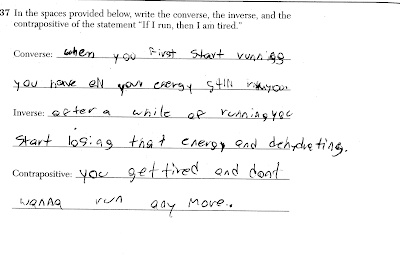 37 In the spaces provided below, write the converse, the inverse, and the
contrapositive of the statement "If I run, then I am tired."
Converse: when you first start running
you have all your energy still
Inverse: after a while of running you
start losing that energy and dehydrating.
Contrapositive: you get tired and dont
wanna run any more.